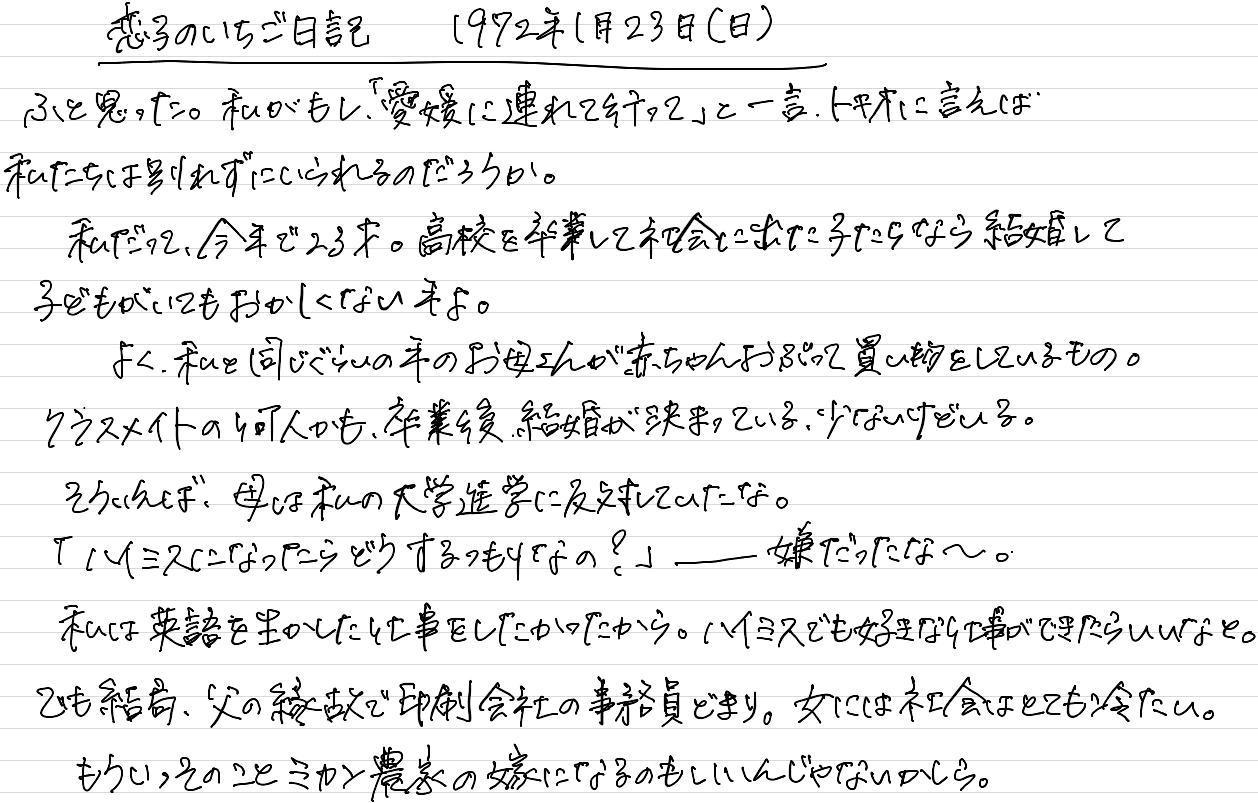 恋子のいちご日記　1972年1月23日(日)
ふと思った。私がもし、「愛媛に連れて行って」と一言、トオルに言えば
私たちは別れずにいられるのだろうか。
私だって、今年で23才。高校を卒業して社会に出た子たちなら結婚して
子どもがいてもおかしくない年よ。
よく、私と同じぐらいの年のお母さんが赤ちゃんおぶって買い物をしているもの。
クラスメイトの何人かも、卒業後、結婚が決まっている、少ないけどいる。
そういえば、母は私の大学進学に反対していたな。
「ハイミスになったらどうするつもりなの？」――嫌だったな〜。
私は英語を生かした仕事をしたかったから。ハイミスでも好きな仕事ができたらいいなと。
でも結局、父の縁故で印刷会社の事務員どまり。女には社会はとても冷たい。
もういっそのことミカン農家の嫁になるのもいいんじゃないかしら。